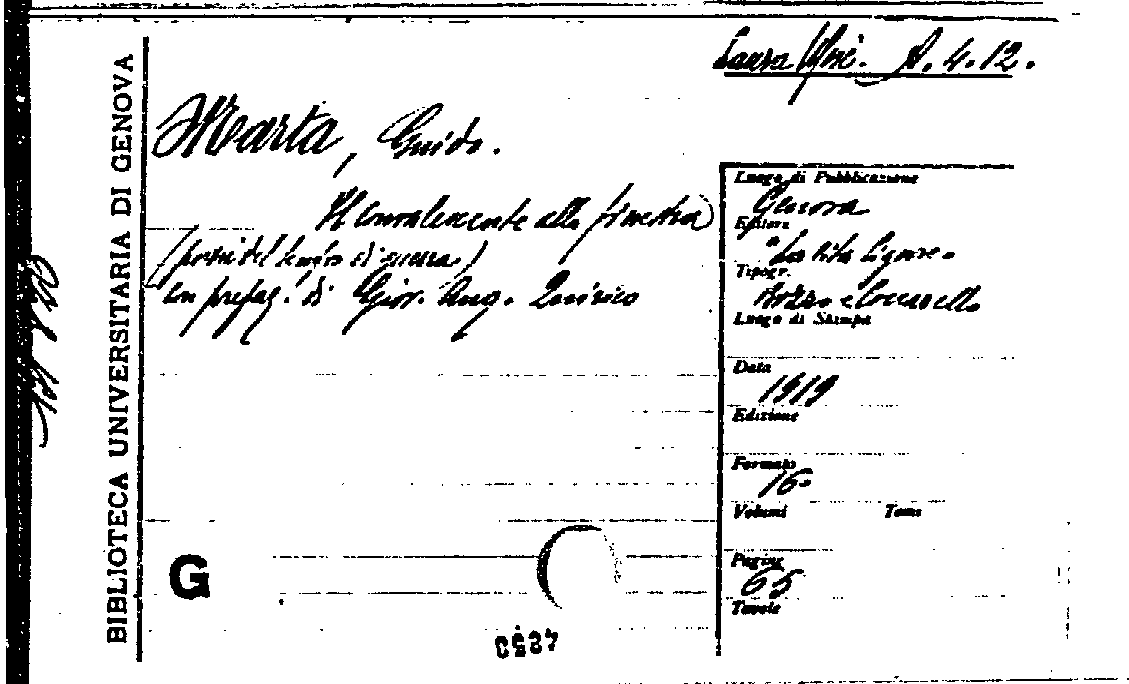 A. 4. 12.
Marta, Guido.
Il convalescente alla finestra
(poesie del tempo di guerra)
con prefaz. di Giov. Aug. Quirico
Luogo di Pubblicazione
Genova
Editore
"La Vita Ligure"
Tipogr.
Luogo di Stampa
Data
1919
Edizione
Formato
16°
Volumi Tomi
Pagine
65
Tavole
BIBLIOTECA UNIVERSITARIA DI GENOVA
G